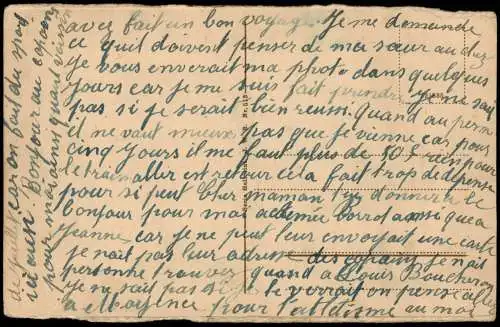 avez fait un bon voyage. Je me demande
ce qu'il doivent penser de ma sœur au dez
Je vous enverait ma photo dans quelques
jours car je me suis fait prendre, je ne sait
pas si je serait bien reussi. Quand au perme
il ne vaut mieux pas que je vienne car pour
cinq jours il me faut plus de 50 rien pour
le train aller est retour cela fait trop de depense
pour si peut Cher maman tu donnera le
bonjour pour moi a aussi que a
Jeanne car je ne peut leur envoyait une carte
je nait pas leur adresse des copains je nait
personne trouvez quand a Louis Boucheron
je ne sait pas si je le verrait on pense allé
a Mayence pour l'atletisme au moi
de car on fait du spor
ici aussi. Bonjour au copains
pour moi ainsi quand voisin